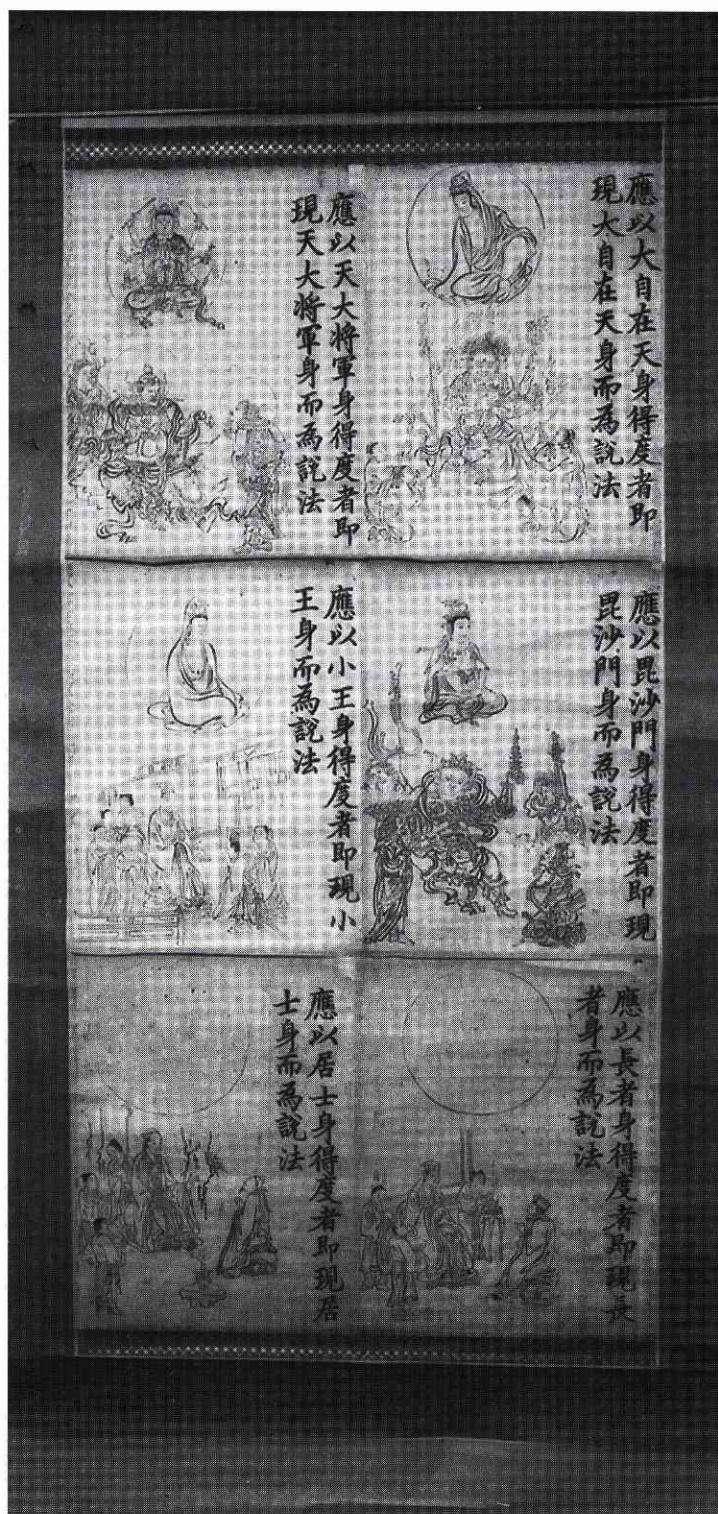 應以大自在天身得度者即
現大自在天身而為說法
應以天大将軍身得度者即
現天大将軍身而為說法
應以毘沙門身得度者即現
毘沙門身而為說法
應以小王身得度者即現小
王身而為說法
應以長者身得度者即現長
者身而為說法
應以居士身得度者即現居
士身而為說法